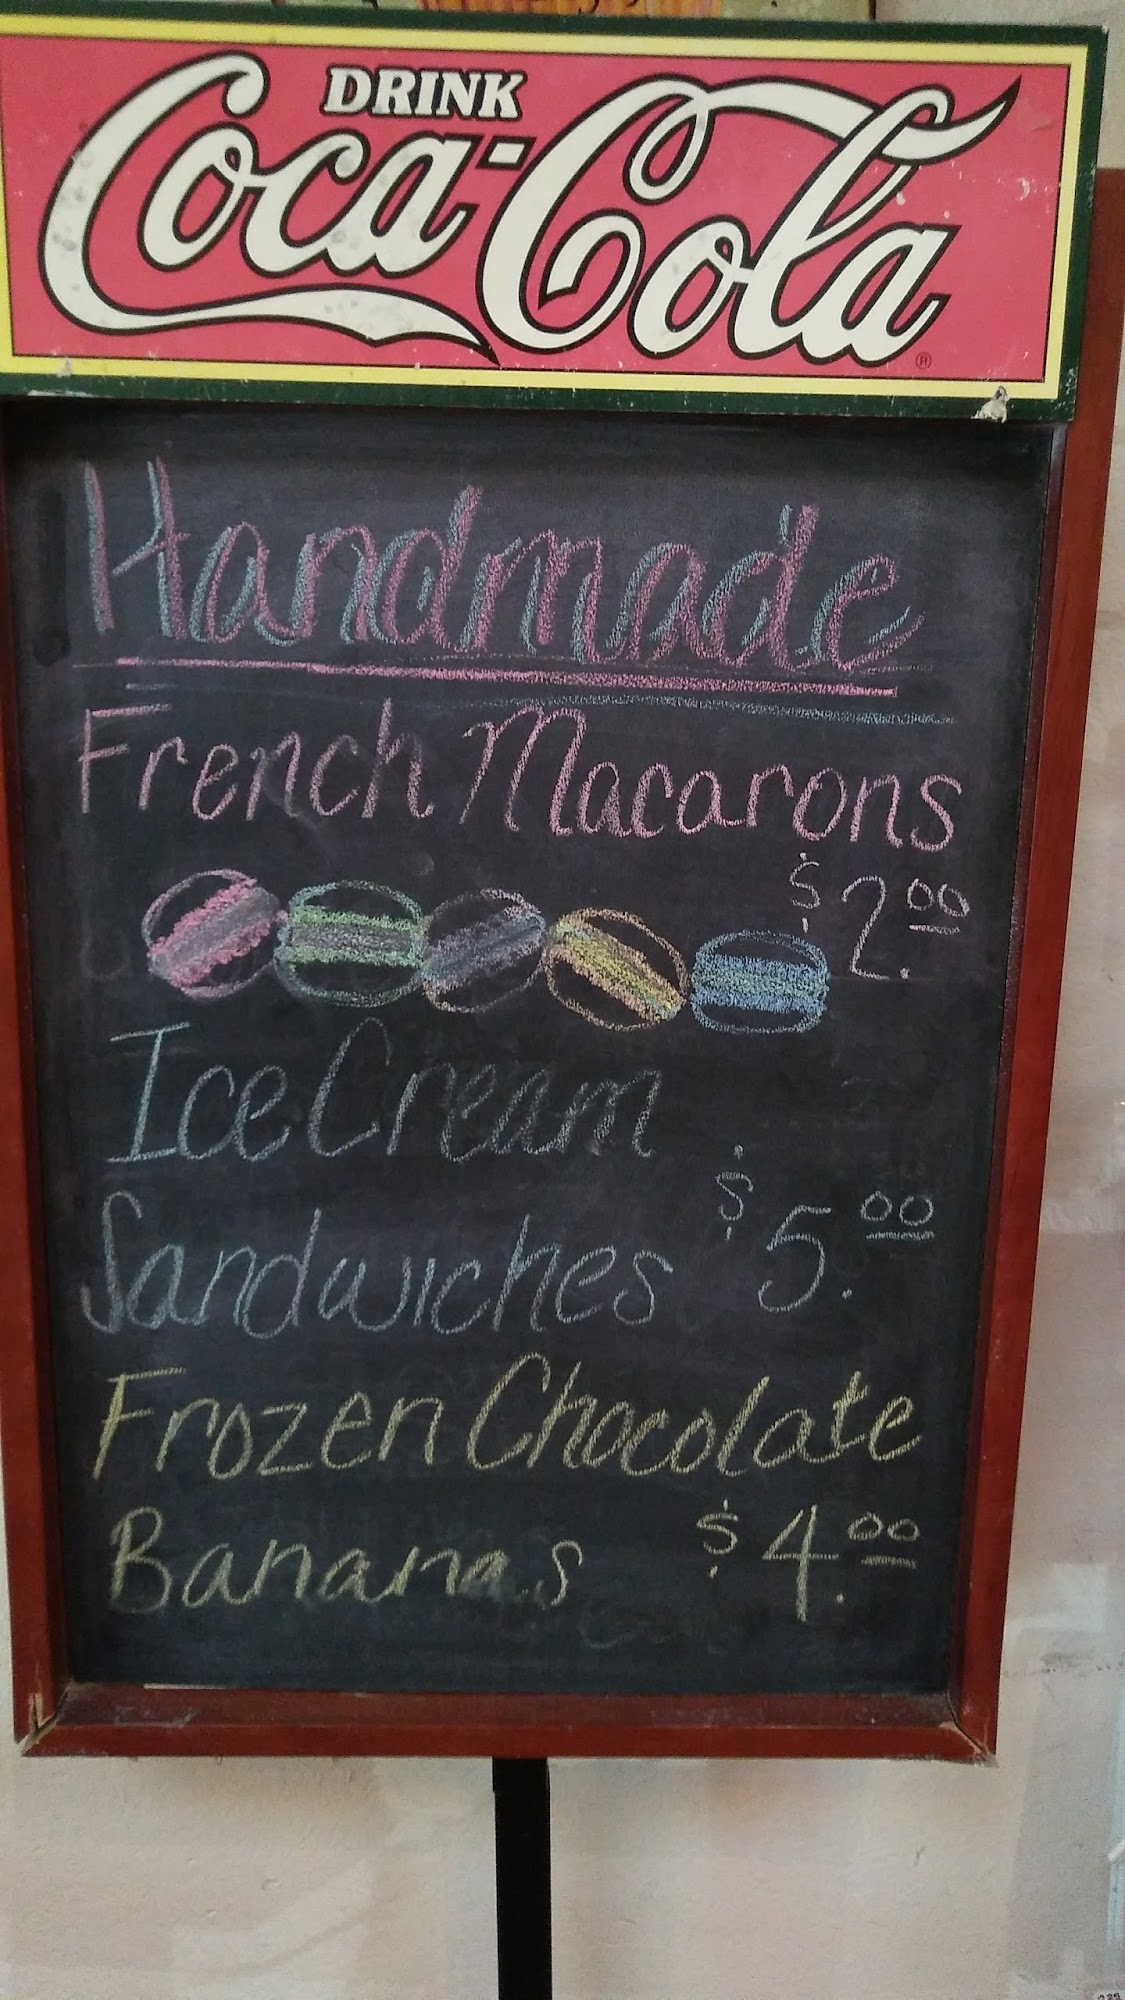 DRINK
Coca-Cola
®
Handmade
French Macarons
$2.00
Ice Cream
Sandwiches $5.00
Frozen Chocolate
Bananas $4.00